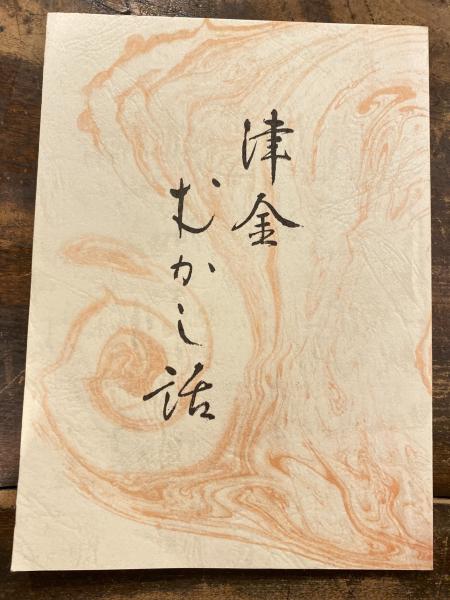 津金
むかし話